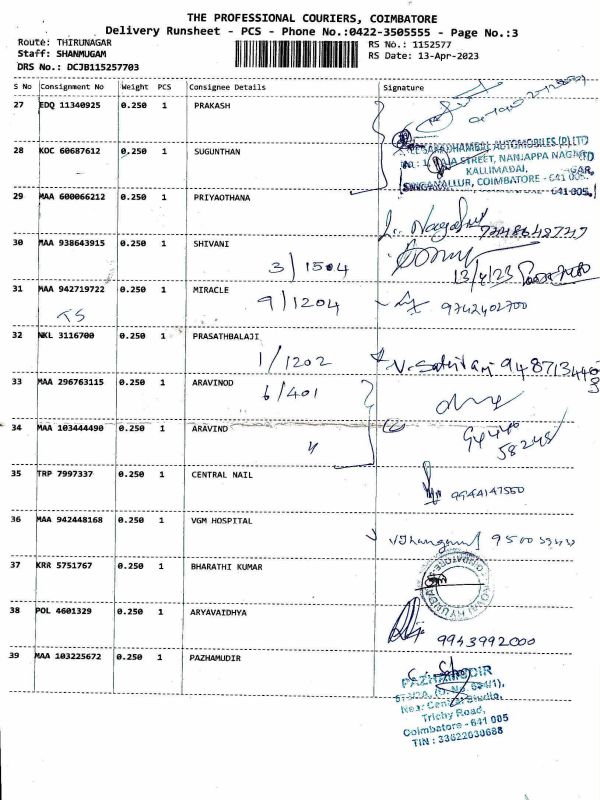 THE PROFESSIONAL COURIERS, COIMBATORE
Delivery Runsheet - PCS - Phone No.:0422-3505555 - Page No.:3
Route: THIRUNAGAR RS No.: 1152577
Staff: SHANMUGAM RS Date: 13-Apr-2023
DRS No.: DCJB115257703
S No Consignment No Weight PCS Consignee Details Signature
27 EDQ 11340925 0.250 1 PRAKASH
28 KOC 60687612 0.250 1 SUGUNTHAN
AUTOMOBILES (P) LTD
STREET, NANJAPPA NAGAR
KALLIMADAI,
SINGANALLUR, COIMBATORE - 641 005.
29 MAA 600066212 0.250 1 PRIYAOTHANA
30 MAA 938643915 0.250 1 SHIVANI
3/1504 13/4/23
31 MAA 942719722 0.250 1 MIRACLE
9/1204 9742402700
32 NKL 3116700 0.250 1 PRASATHBALAJI
1/1202
33 MAA 296763115 0.250 1 ARAVINOD
6/401
34 MAA 103444490 0.250 1 ARAVIND
94446
58248
35 TRP 7997337 0.250 1 CENTRAL NAIL
9944147550
36 MAA 942448168 0.250 1 VGM HOSPITAL
37 KRR 5751767 0.250 1 BHARATHI KUMAR
38 POL 4601329 0.250 1 ARYAVAIDHYA
9943992000
39 MAA 103225672 0.250 1 PAZHAMUDIR
PAZHAMUDIR
Near Central Studio,
Trichy Road,
Coimbatore - 641 005
TIN : 33622030688